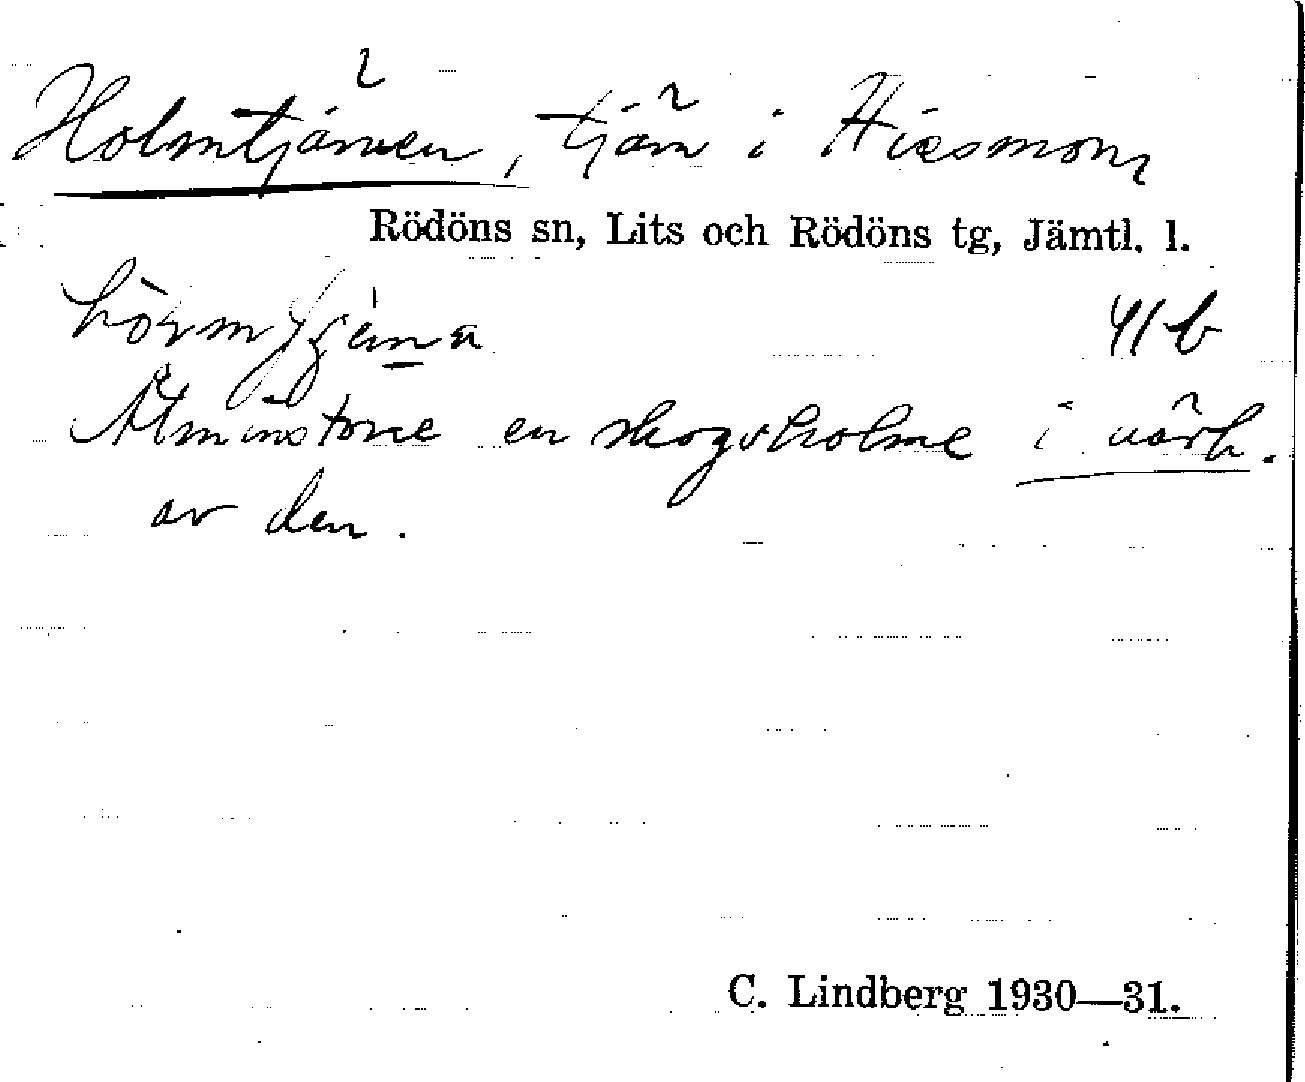 Holmtjärnen, tjärn i Hissmon,
Rödöns sn, Lits och Rödöns tg, Jämtl. l.
41 b
Åtminstone en skogsholme i närh.
av den.
C. Lindberg 1930—31.